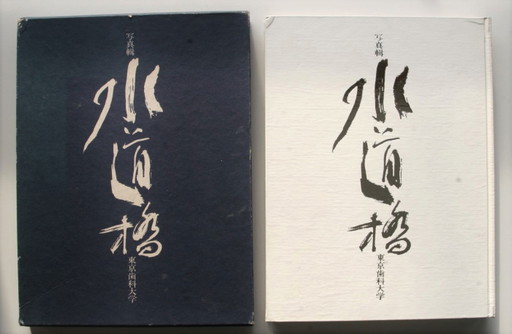 写真輯
水道橋
東京歯科大学
写真輯
水道橋
東京歯科大学